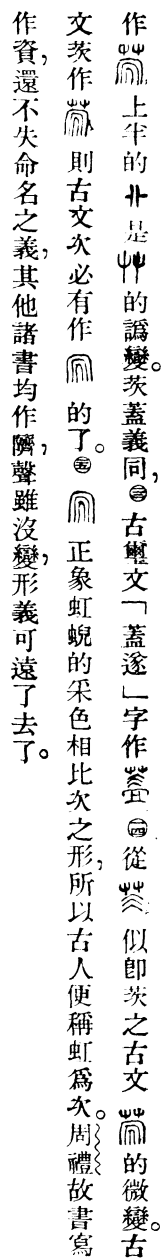 作上半的是艸的譌變。茨蓋義同,㊂古璽文「蓋遂」字作㊃從似卽茨之古文的微變。古
文茨作則古文次必有作的了。㊄正象虹蜺的采色相比次之形,所以古人便稱虹爲次。周禮故書寫
作資,還不失命名之義,其他諸書均作隮,聲雖沒變,形義可遠了去了。